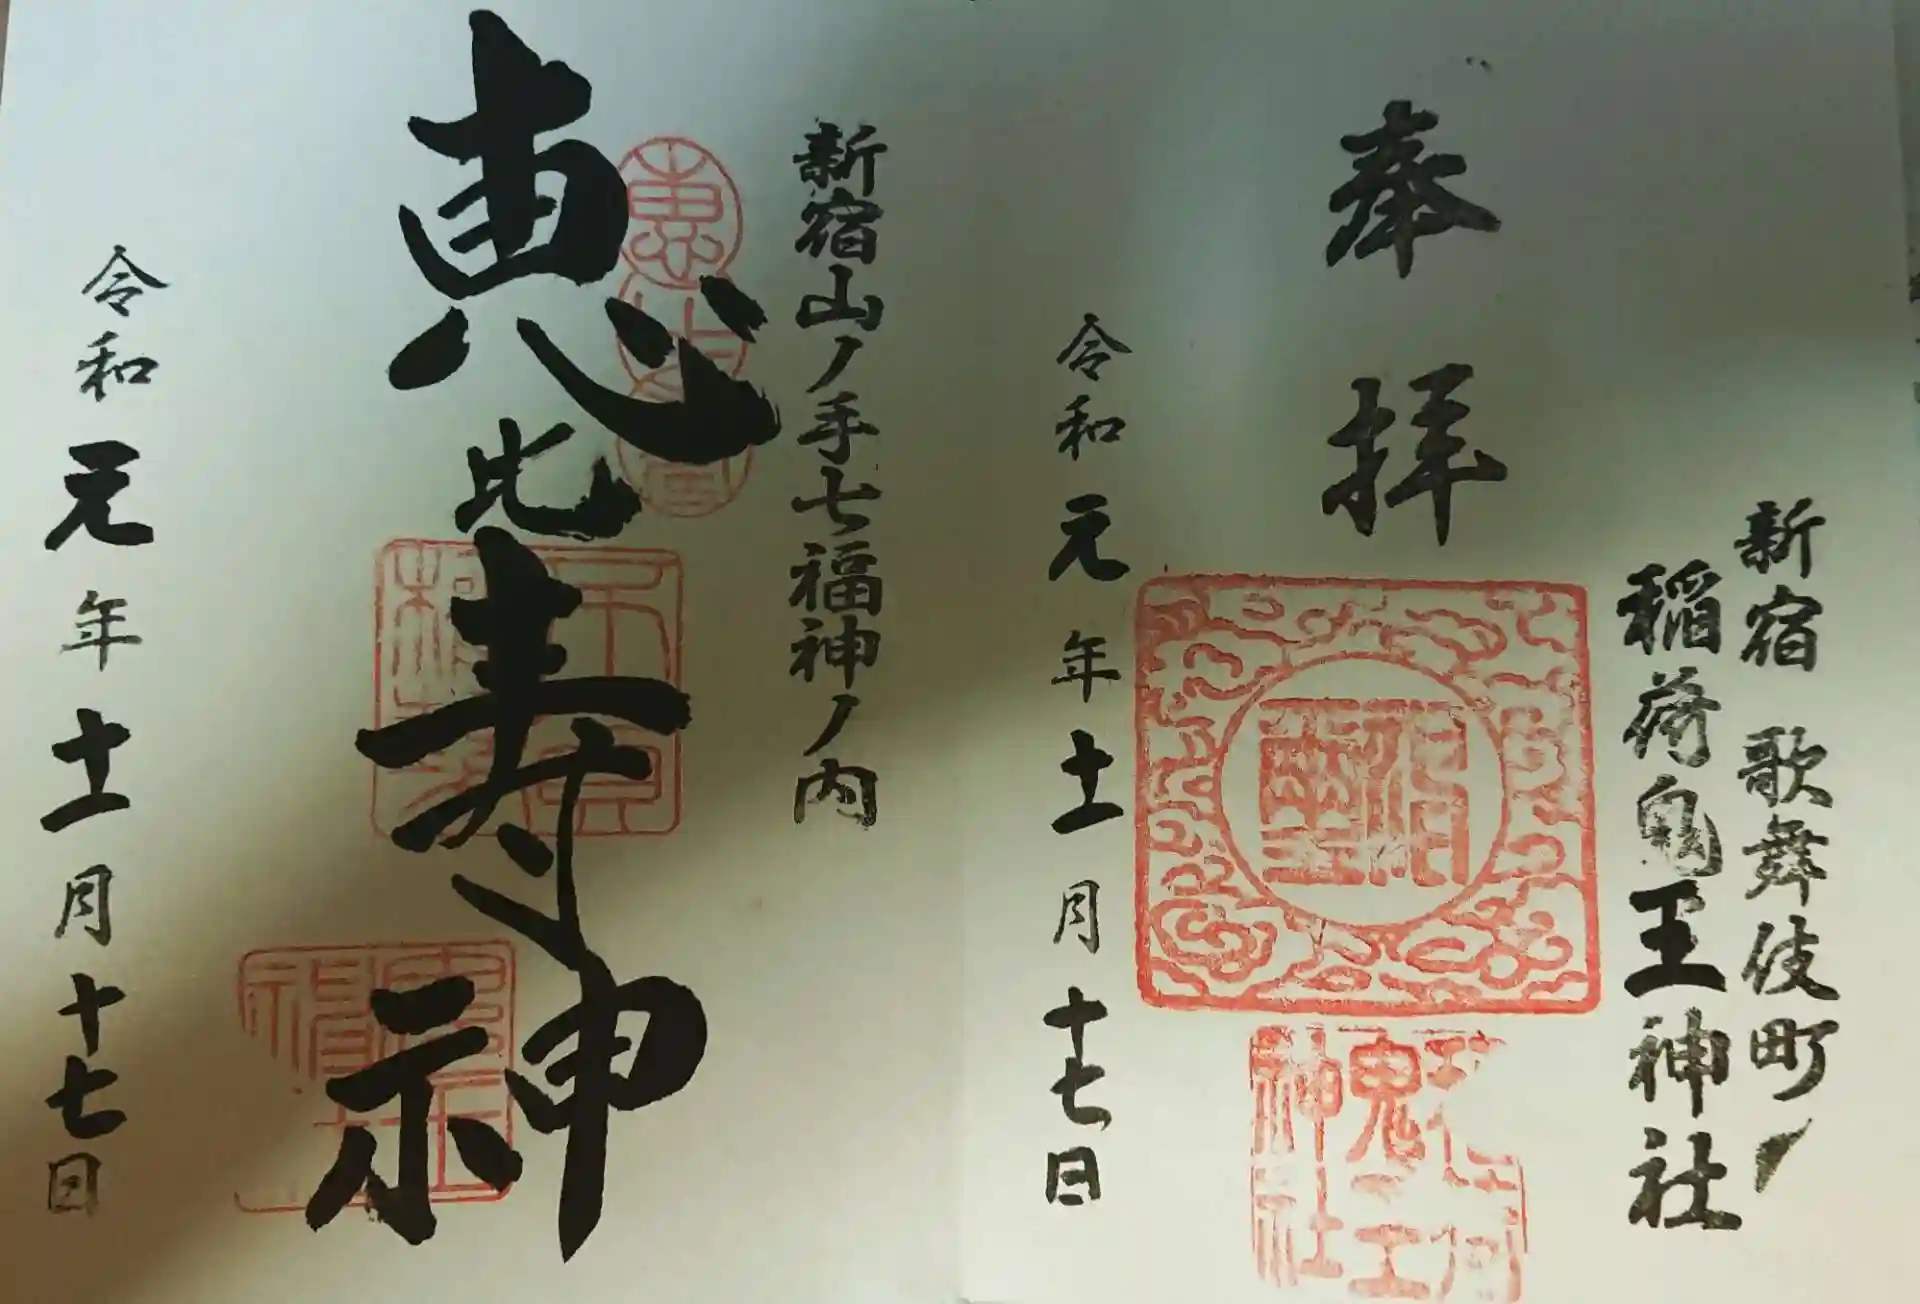 新宿 歌舞伎町ノ
稲荷鬼王神社
奉拝
鬼王
神社
令和元年十一月十七日
新宿山ノ手七福神ノ内
恵比寿神
令和元年十一月十七日